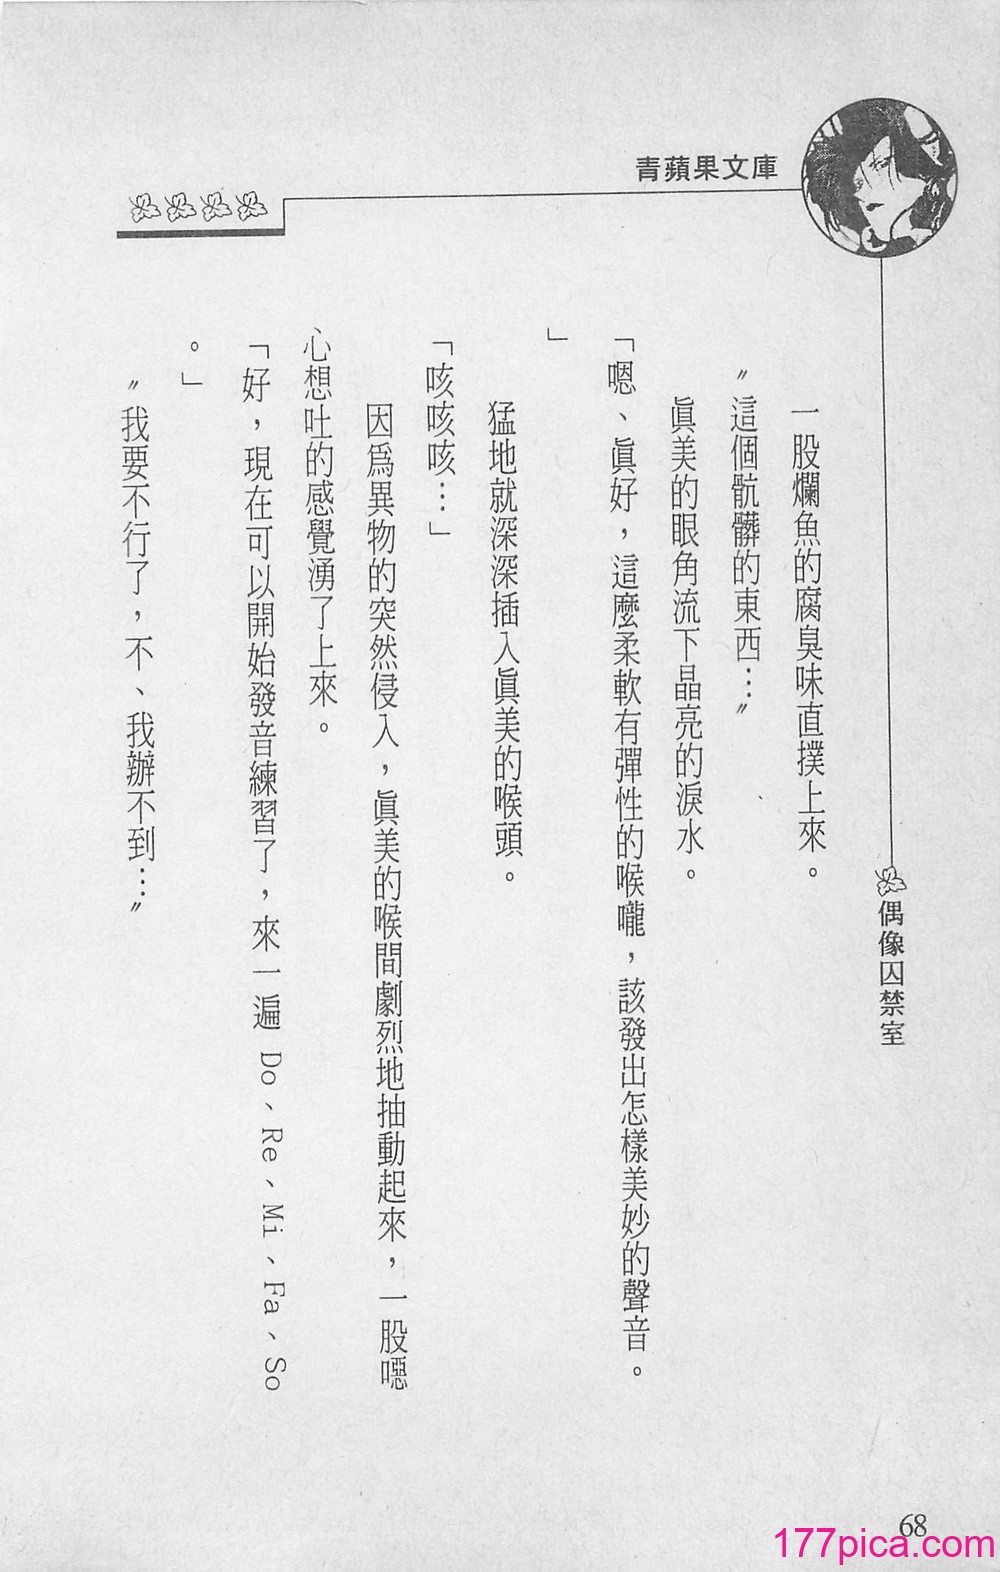 青蘋果文庫
偶像囚禁室
一股爛魚的腐臭味直撲上來。
〝這個骯髒的東西…〞
眞美的眼角流下晶亮的淚水。
「嗯、眞好，這麼柔軟有彈性的喉嚨，該發出怎樣美妙的聲音。
」
猛地就深深插入眞美的喉頭。
「咳咳咳…」
因爲異物的突然侵入，眞美的喉間劇烈地抽動起來，一股噁
心想吐的感覺湧了上來。
「好，現在可以開始發音練習了，來一遍 Do、Re、Mi、Fa、So
。」
〝我要不行了，不、我辦不到…〞
68
177pica.com